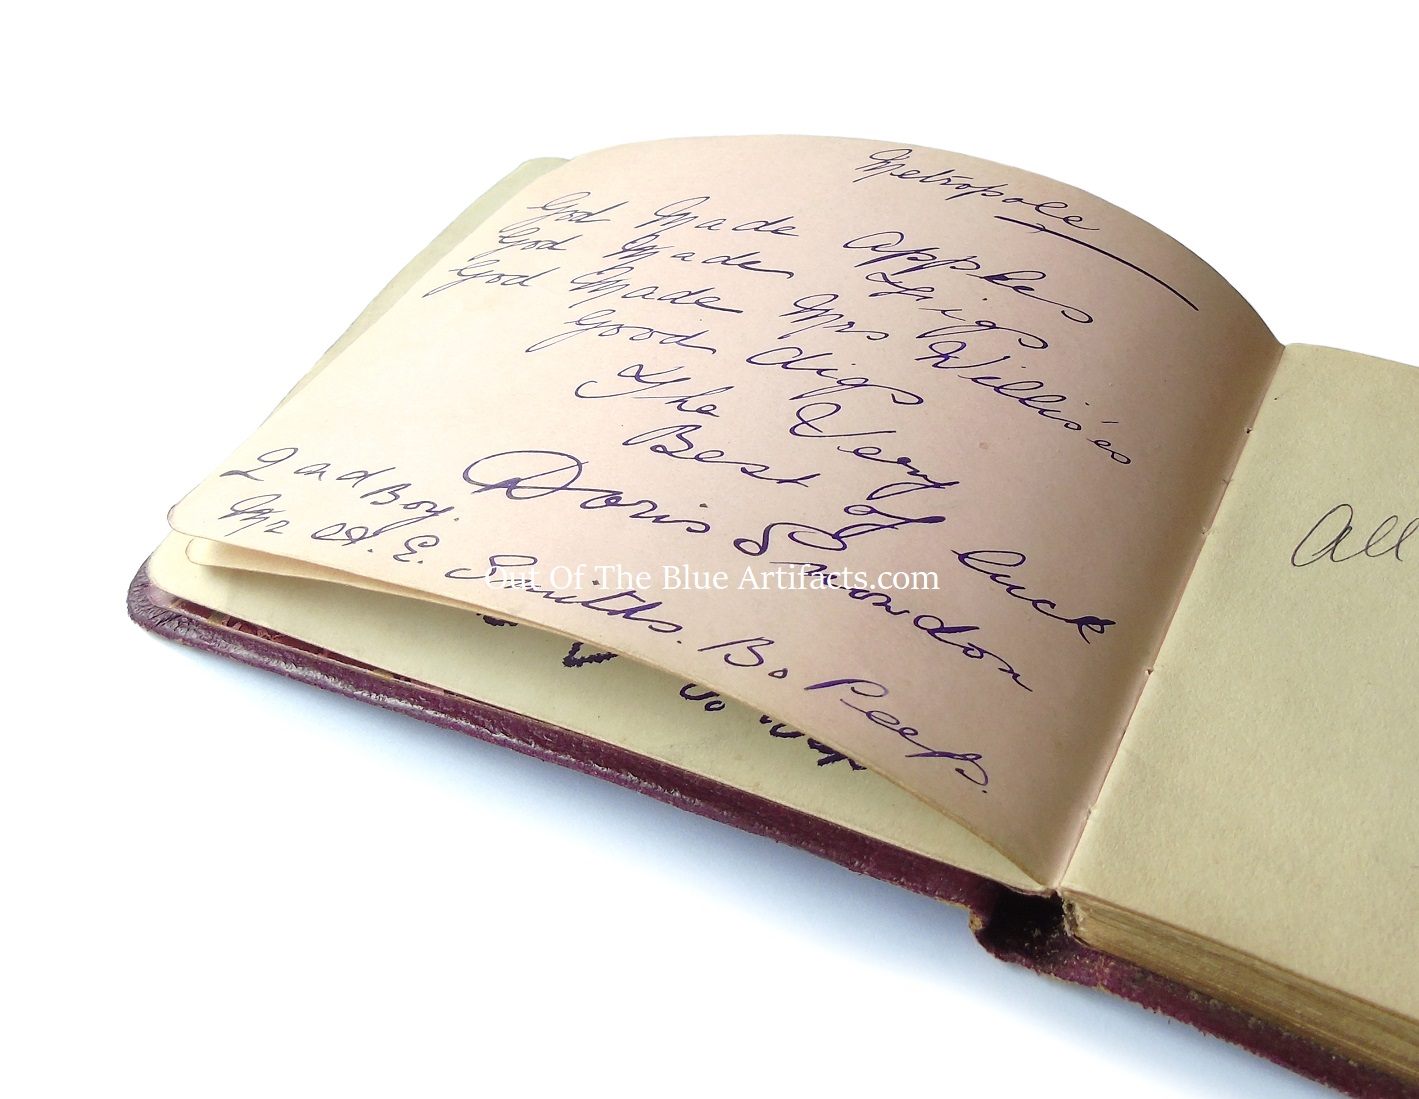 Metropole
God Made Apples
God Made Figs
God Made Mrs Willis'es
Good digs
The Very
Best of luck
Doris Snowdon
2nd Boy.
Mr A. E. Smiths. Bo Peep.
Out Of The Blue Artifacts.com
All